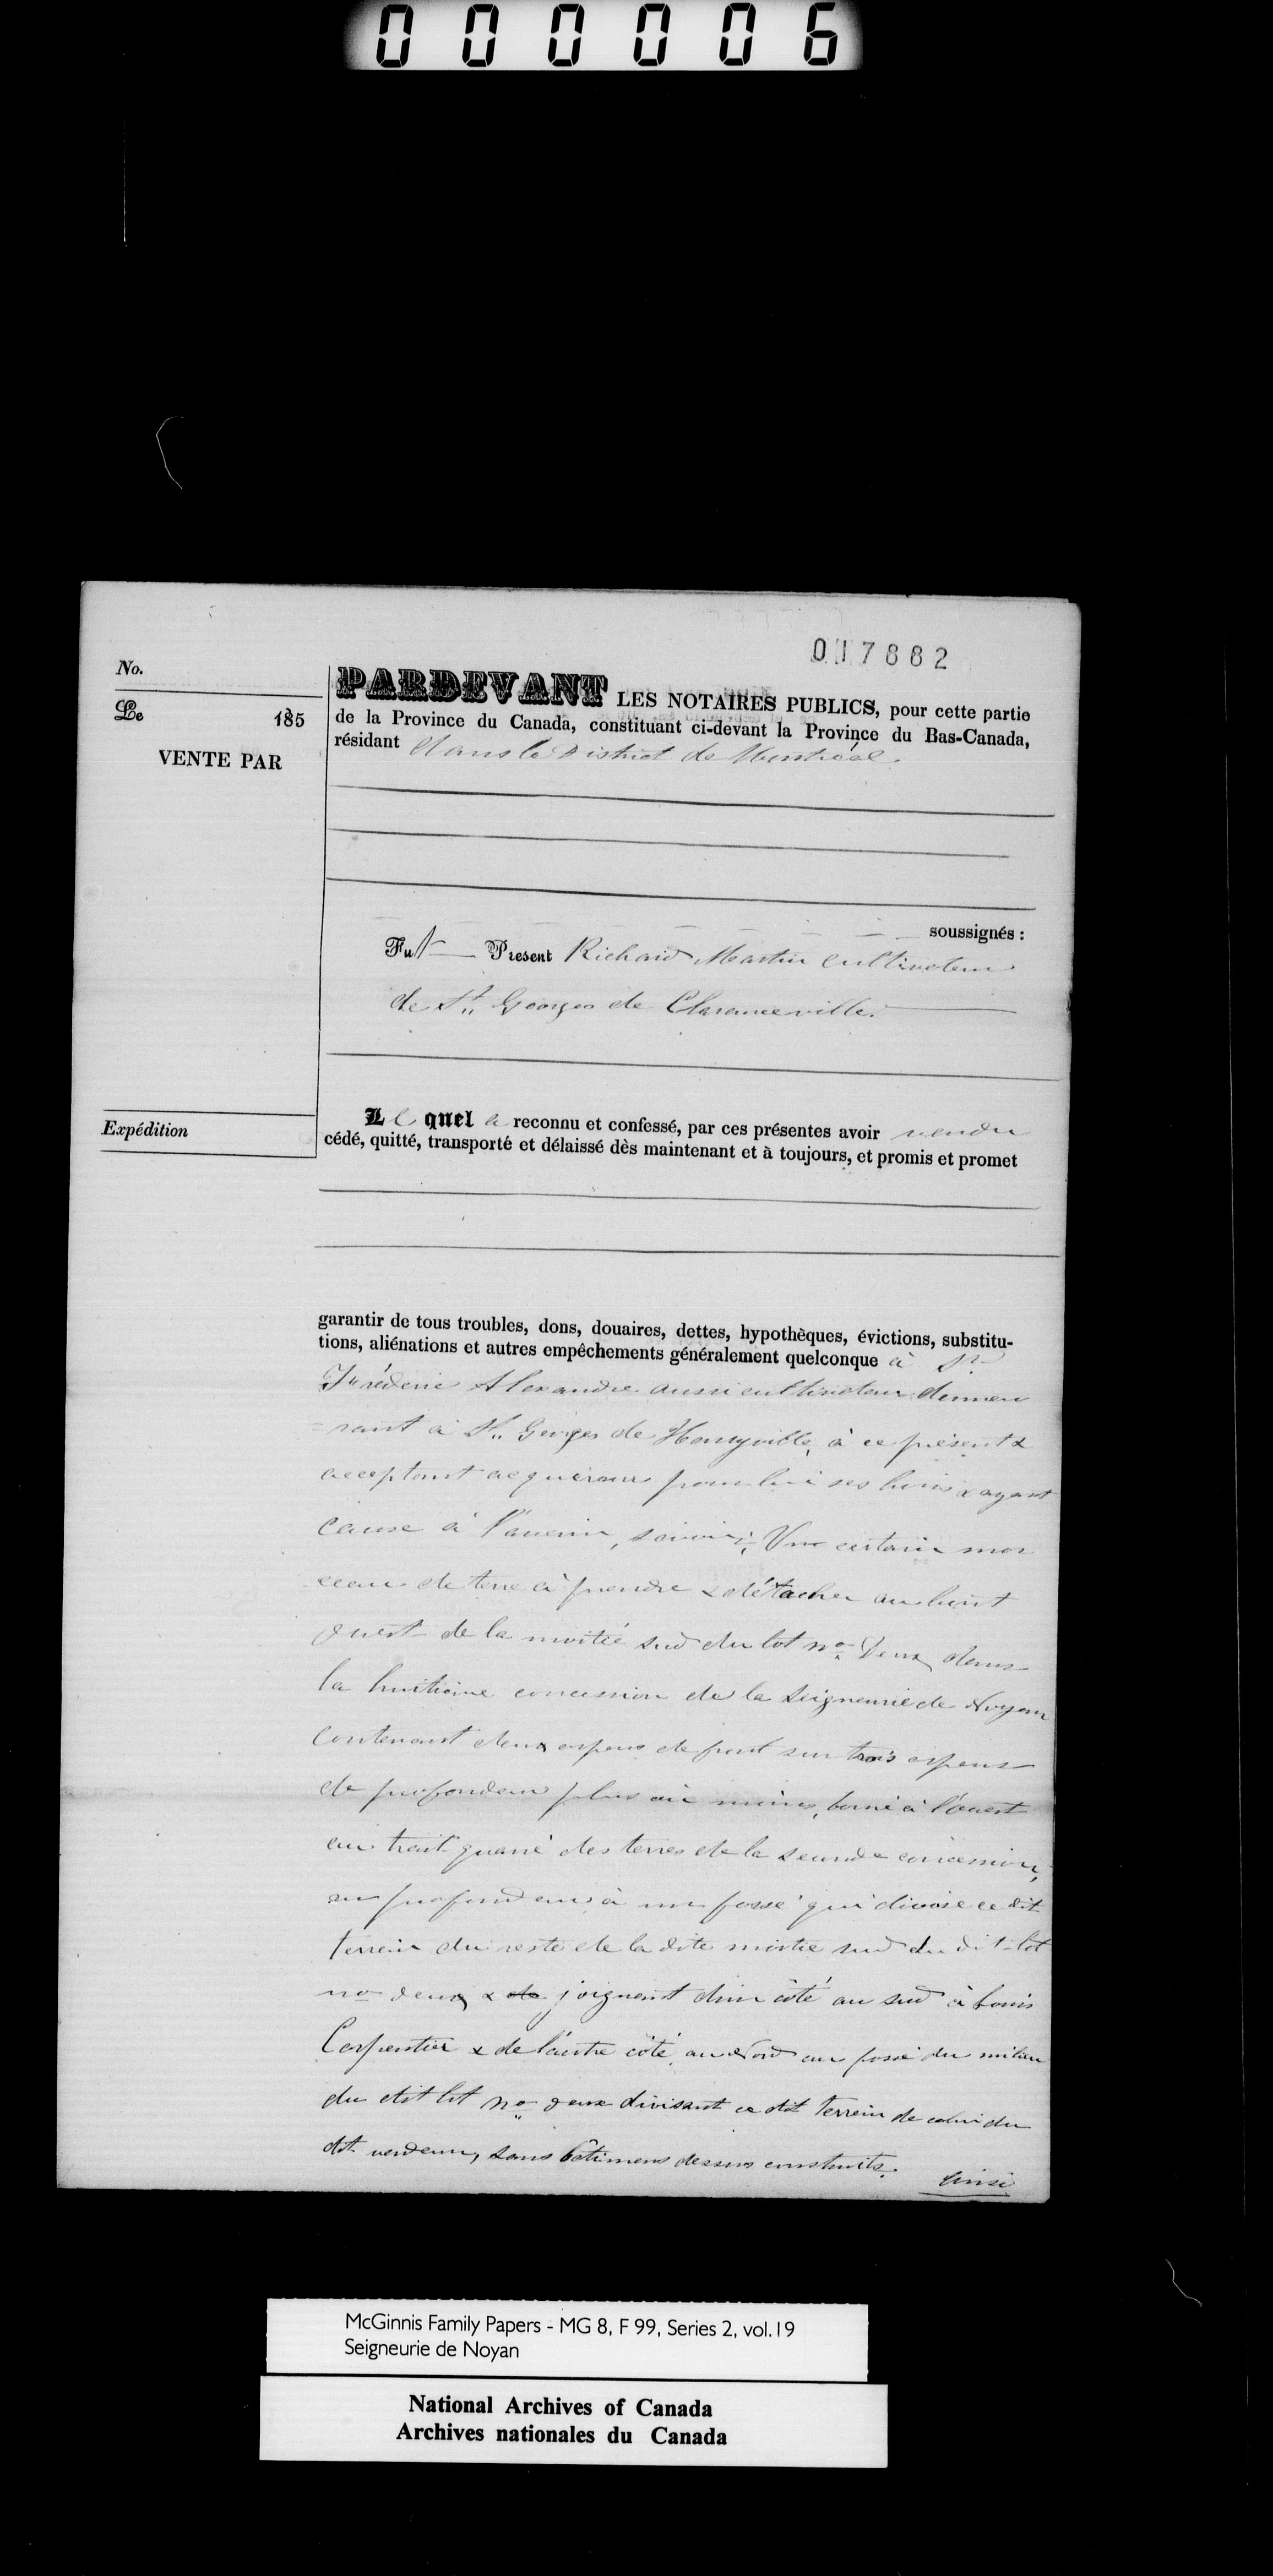 000006
017882
No.
Le 185
VENTE PAR
Expédition
PARDEVANT LES NOTAIRES PUBLICS, pour cette partie
de la Province du Canada, constituant ci-devant la Province du Bas-Canada,
résidant dans le District de Montréal.
soussignés :
Fut Present Richard Martin cultivateur
de St. Georges de Clarenceville.
Lequel a reconnu et confessé, par ces présentes avoir vendu
cédé, quitté, transporté et délaissé dès maintenant et à toujours, et promis et promet
garantir de tous troubles, dons, douaires, dettes, hypothèques, évictions, substitu-
tions, aliénations et autres empêchements généralement quelconque à Sr
Fréderic Alexandre aussi cultivateur demeu
= rant à St. Georges de Henryville, à ce présent &
acceptant acquéreur pour lui ses hoirs & ayant
cause à l'avenir, savoir; Un certain mor
ceau de terre à prendre & détacher au bout
ouest de la moitié sud du lot no. Deux dans
la huitième concession de la Seigneurie de Noyan
contenant deux arpens de front sur trois arpens
de profondeur plus ou moins, borné à l'ouest
au trait quarré des terres de la seconde concession,
en profondeur à un fossé qui divise ce dit
terrein du reste de la dite moitié sud du dit lot
no deux & de joignant d'un côté au sud à Louis
Carpentier & de l'autre côté au Nord au fossé du milieu
du dit lot no deux divisant ce dit terrein de celui du
dit vendeur, sans bâtimens dessus construits.
Ainsi
McGinnis Family Papers - MG 8, F 99, Series 2, vol.19
Seigneurie de Noyan
National Archives of Canada
Archives nationales du Canada